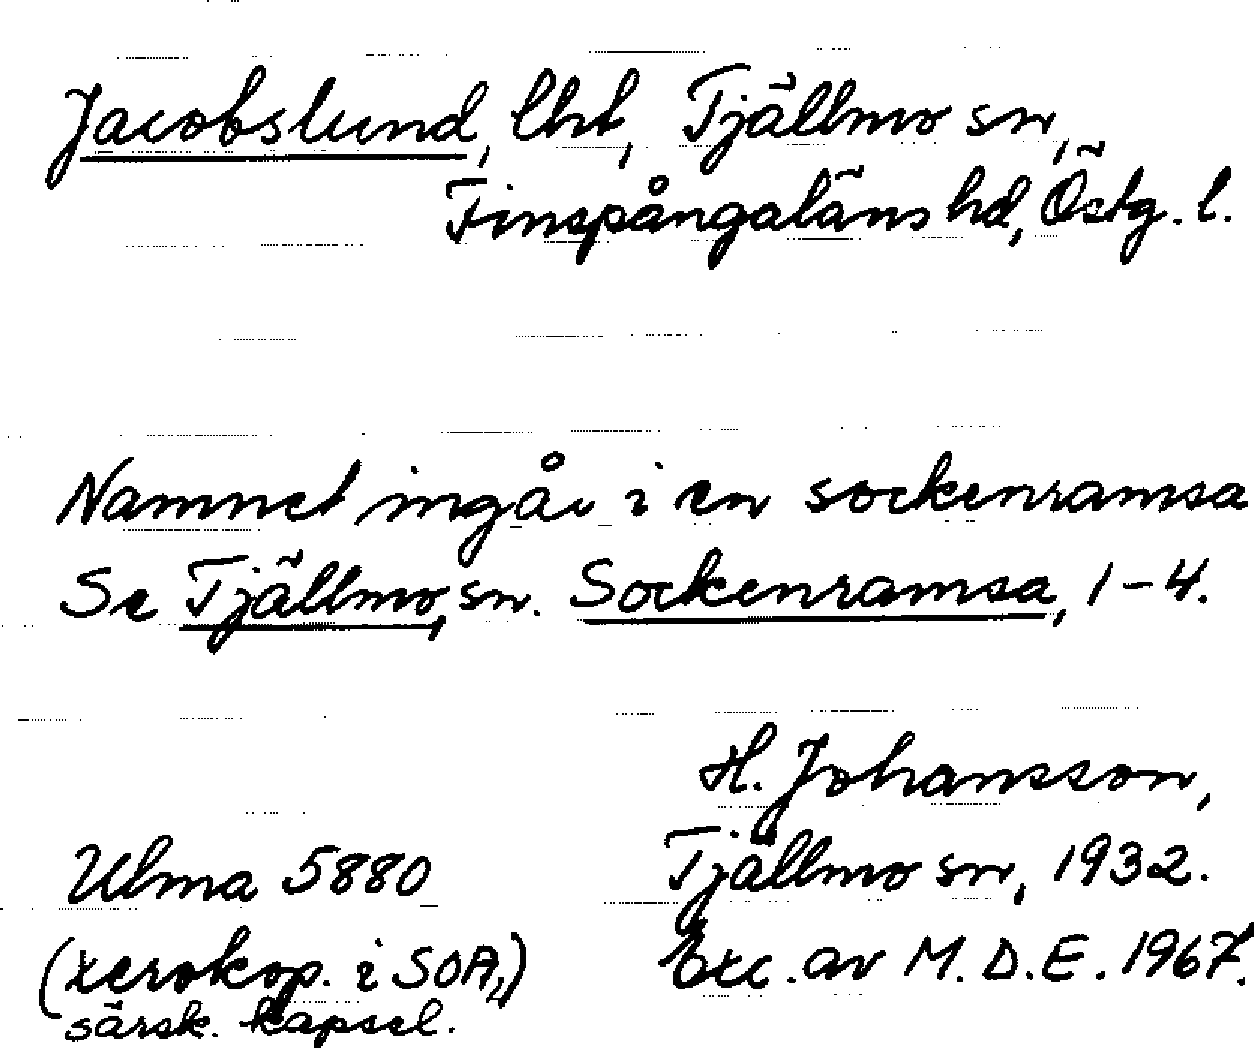 Jacobslund, lht, Tjällmo sn,
Finspångaläns hd, Östg. l.
Namnet ingår i en sockenramsa
Se Tjällmo, sn. Sockenramsa, 1-4.
H. Johansson,
Tjällmo sn, 1932.
Exc. av M. D. E. 1967.
Ulma 5880
(xerokop. i SOA,,)
särsk. kapsel.